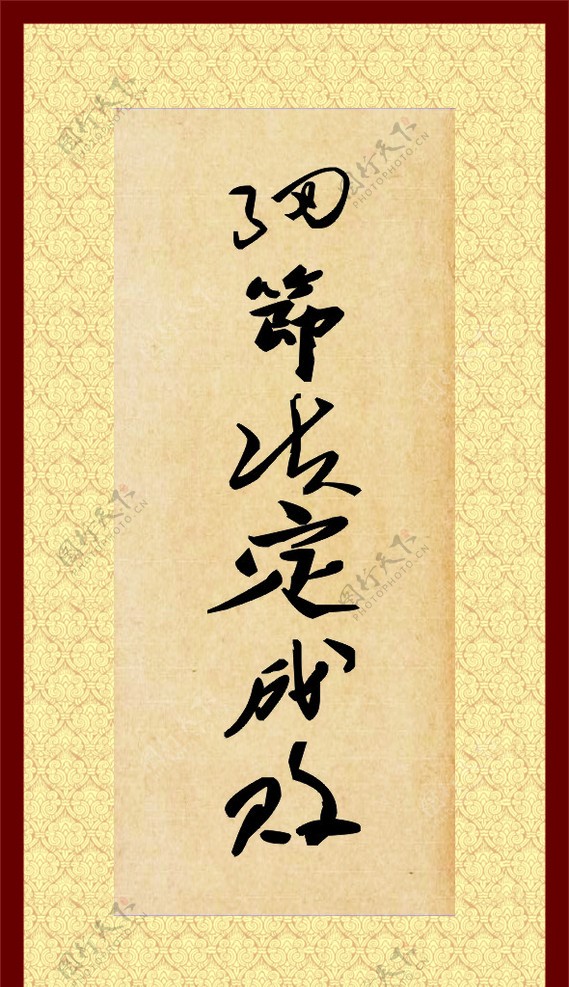 细節决定成败
图行天下
PHOTOPHOTO.CN
图行天下
PHOTOPHOTO.CN
图行天下
PHOTOPHOTO.CN
图行天下
PHOTOPHOTO.CN
图行天下
PHOTOPHOTO.CN
图行天下
PHOTOPHOTO.CN